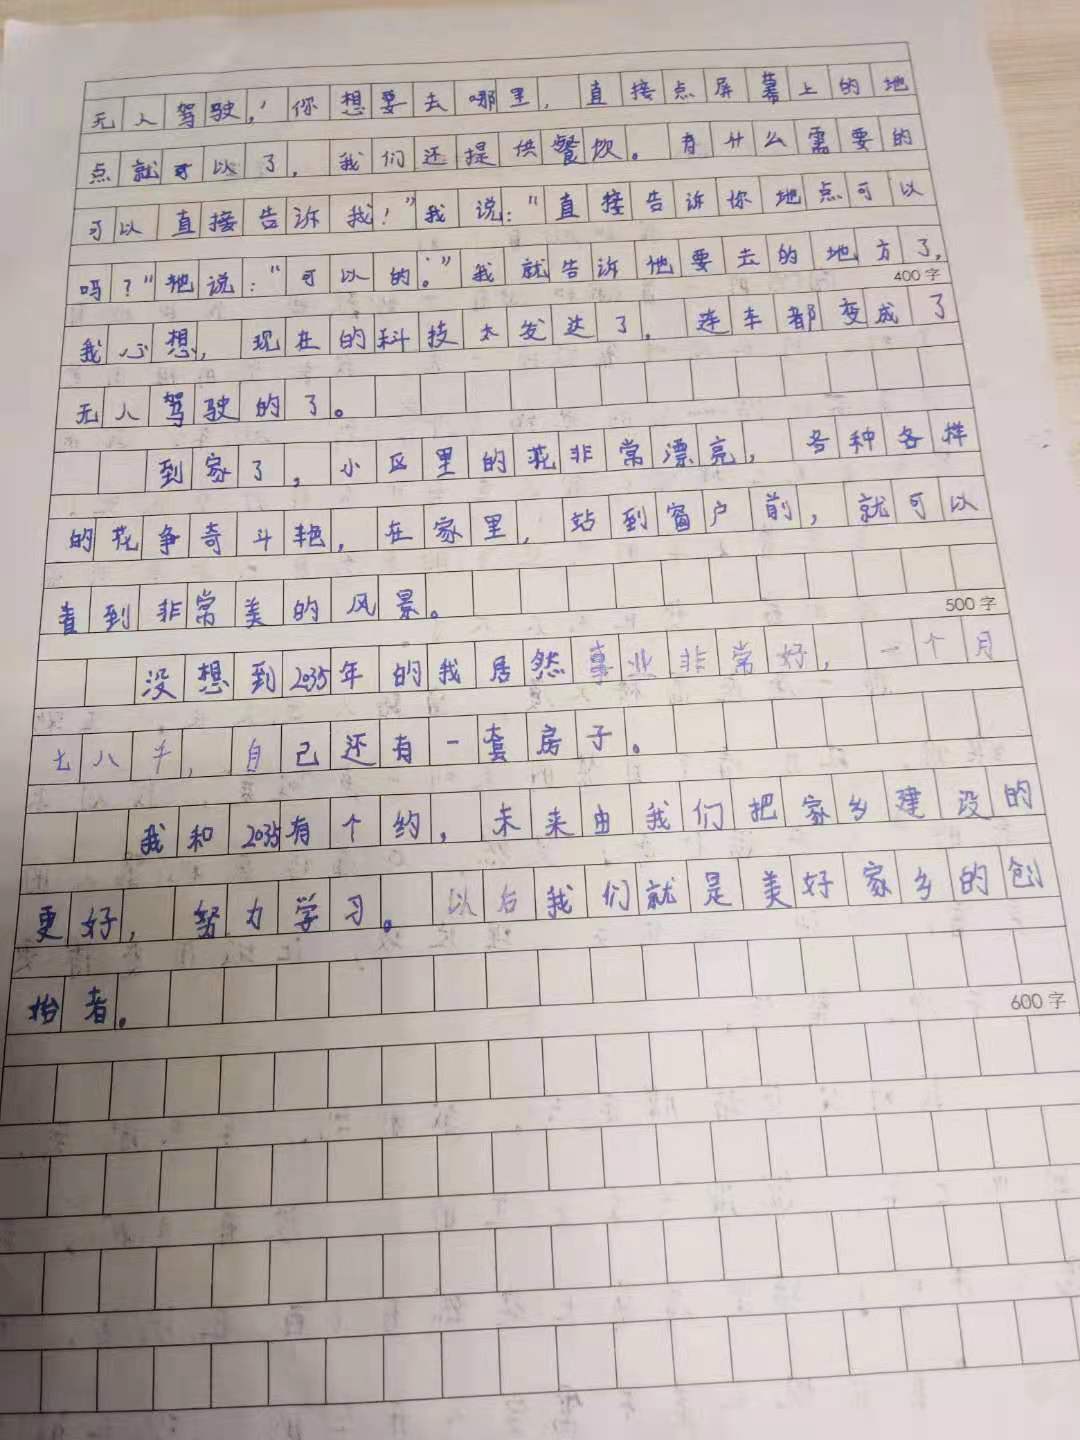 无人驾驶，你想要去哪里，直接点屏幕上的地
点就可以了，我们还提供餐饮。有什么需要的
可以直接告诉我！”我说：“直接告诉你地点可以
吗？”他说：“可以的。”我就告诉他要去的地方了，
400字
我心想，现在的科技太发达了，连车都变成了
无人驾驶的了。
到家了，小区里的花非常漂亮，各种各样
的花争奇斗艳，在家里，站到窗户前，就可以
看到非常美的风景。
500字
没想到2035年的我居然事业非常好，一个月
七八千，自己还有一套房子。
我和2035有个约，未来由我们把家乡建设的
更好，努力学习。以后我们就是美好家乡的创
始者。
600字